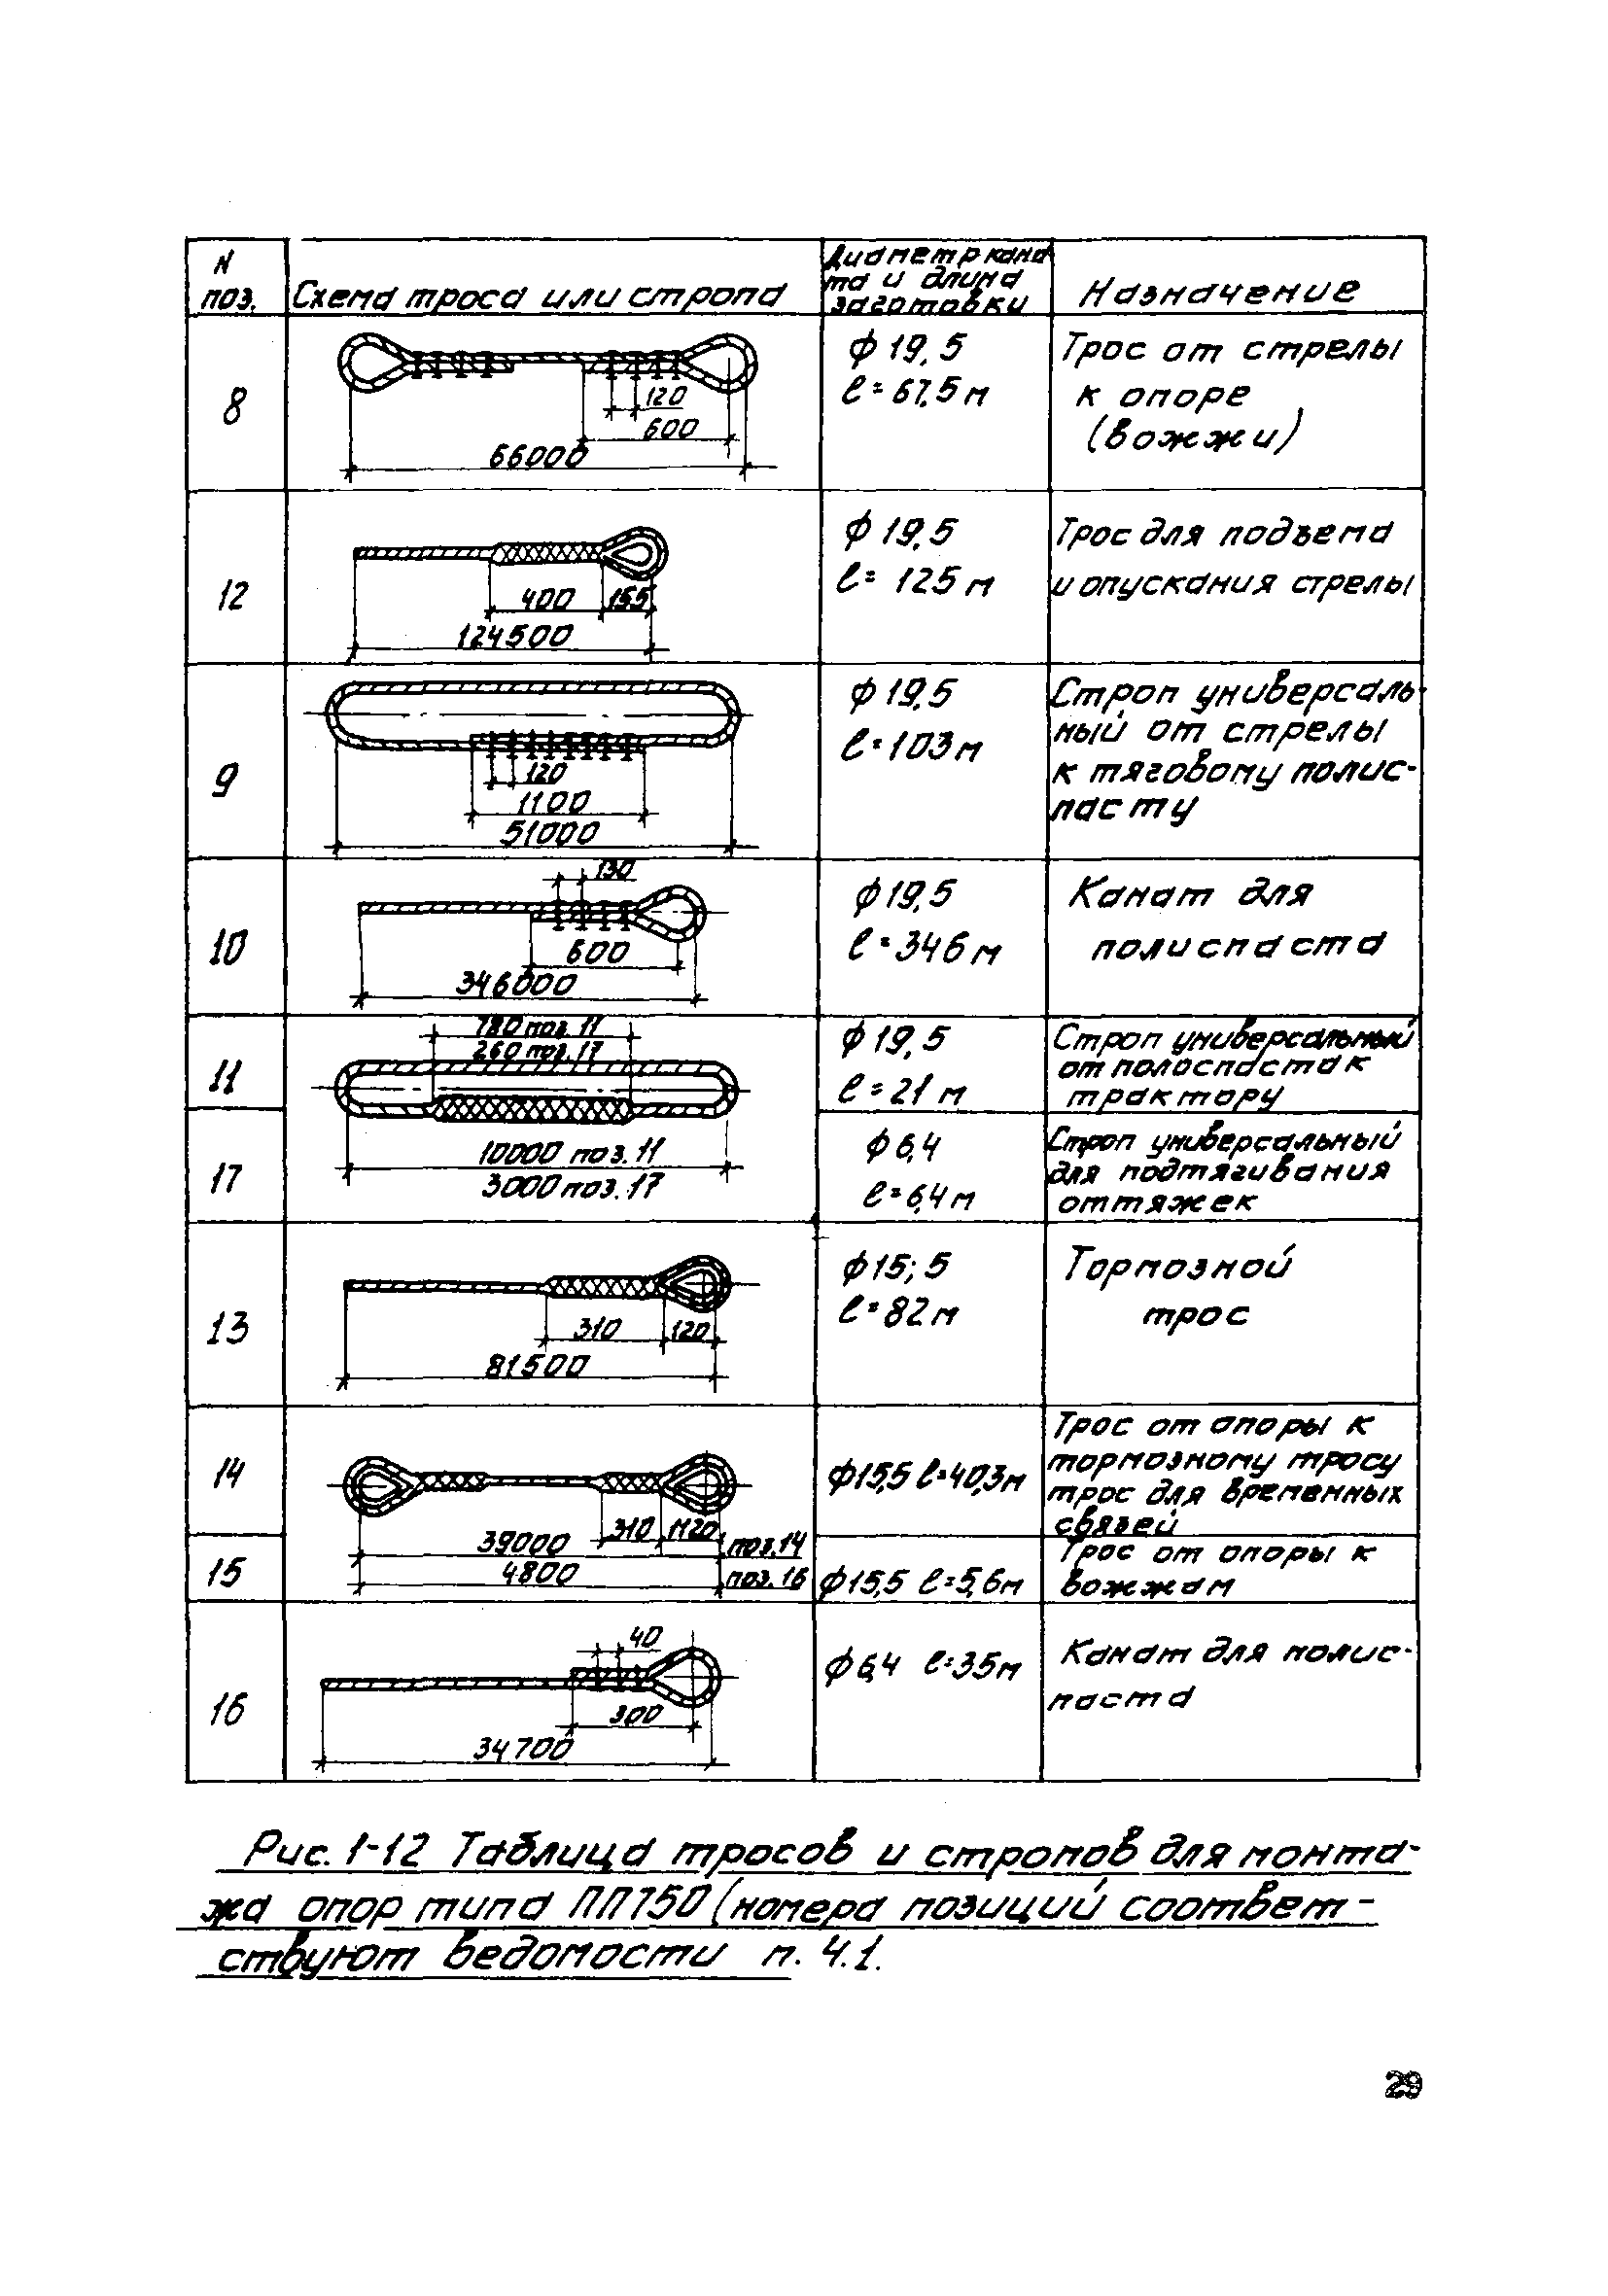 N
поз.
Схема троса или стропа
Диаметр кана
та и длина
заготовки
Назначение
8
120
600
66000
ϕ 19,5
ℓ=67,5 м
Трос от стрелы
к опоре
(вожжи)
12
400
155
124500
ϕ 19,5
ℓ= 125 м
Трос для подъема
и опускания стрелы
9
120
1100
51000
ϕ 19,5
ℓ=103 м
Строп универсаль-
ный от стрелы
к тяговому полис-
пасту
10
130
600
346000
ϕ 19,5
ℓ=346 м
Канат для
полиспаста
11
780 поз. 11
260 поз. 17
ϕ 19,5
ℓ=21 м
Строп универсальный
от полоспаста к
трактору
17
10000 поз. 11
3000 поз. 17
ϕ 6,4
ℓ=6,4 м
Строп универсальный
для подтягивания
оттяжек
13
310
120
81500
ϕ 15; 5
ℓ=82 м
Тормозной
трос
14
310
39000
поз. 14
ϕ 15,5 ℓ=40,3 м
Трос от опоры к
тормозному тросу
трос для временных
связей
15
4800
поз. 16
ϕ 15,5 ℓ=5,6 м
Трос от опоры к
вожжам
16
40
300
34700
ϕ 6,4 ℓ=35 м
Канат для полис-
паста
Рис. 1-12 Таблица тросов и стропов для монта-
жа опор типа ПП750 (номера позиций соответ-
ствуют ведомости п. 4.1.
29